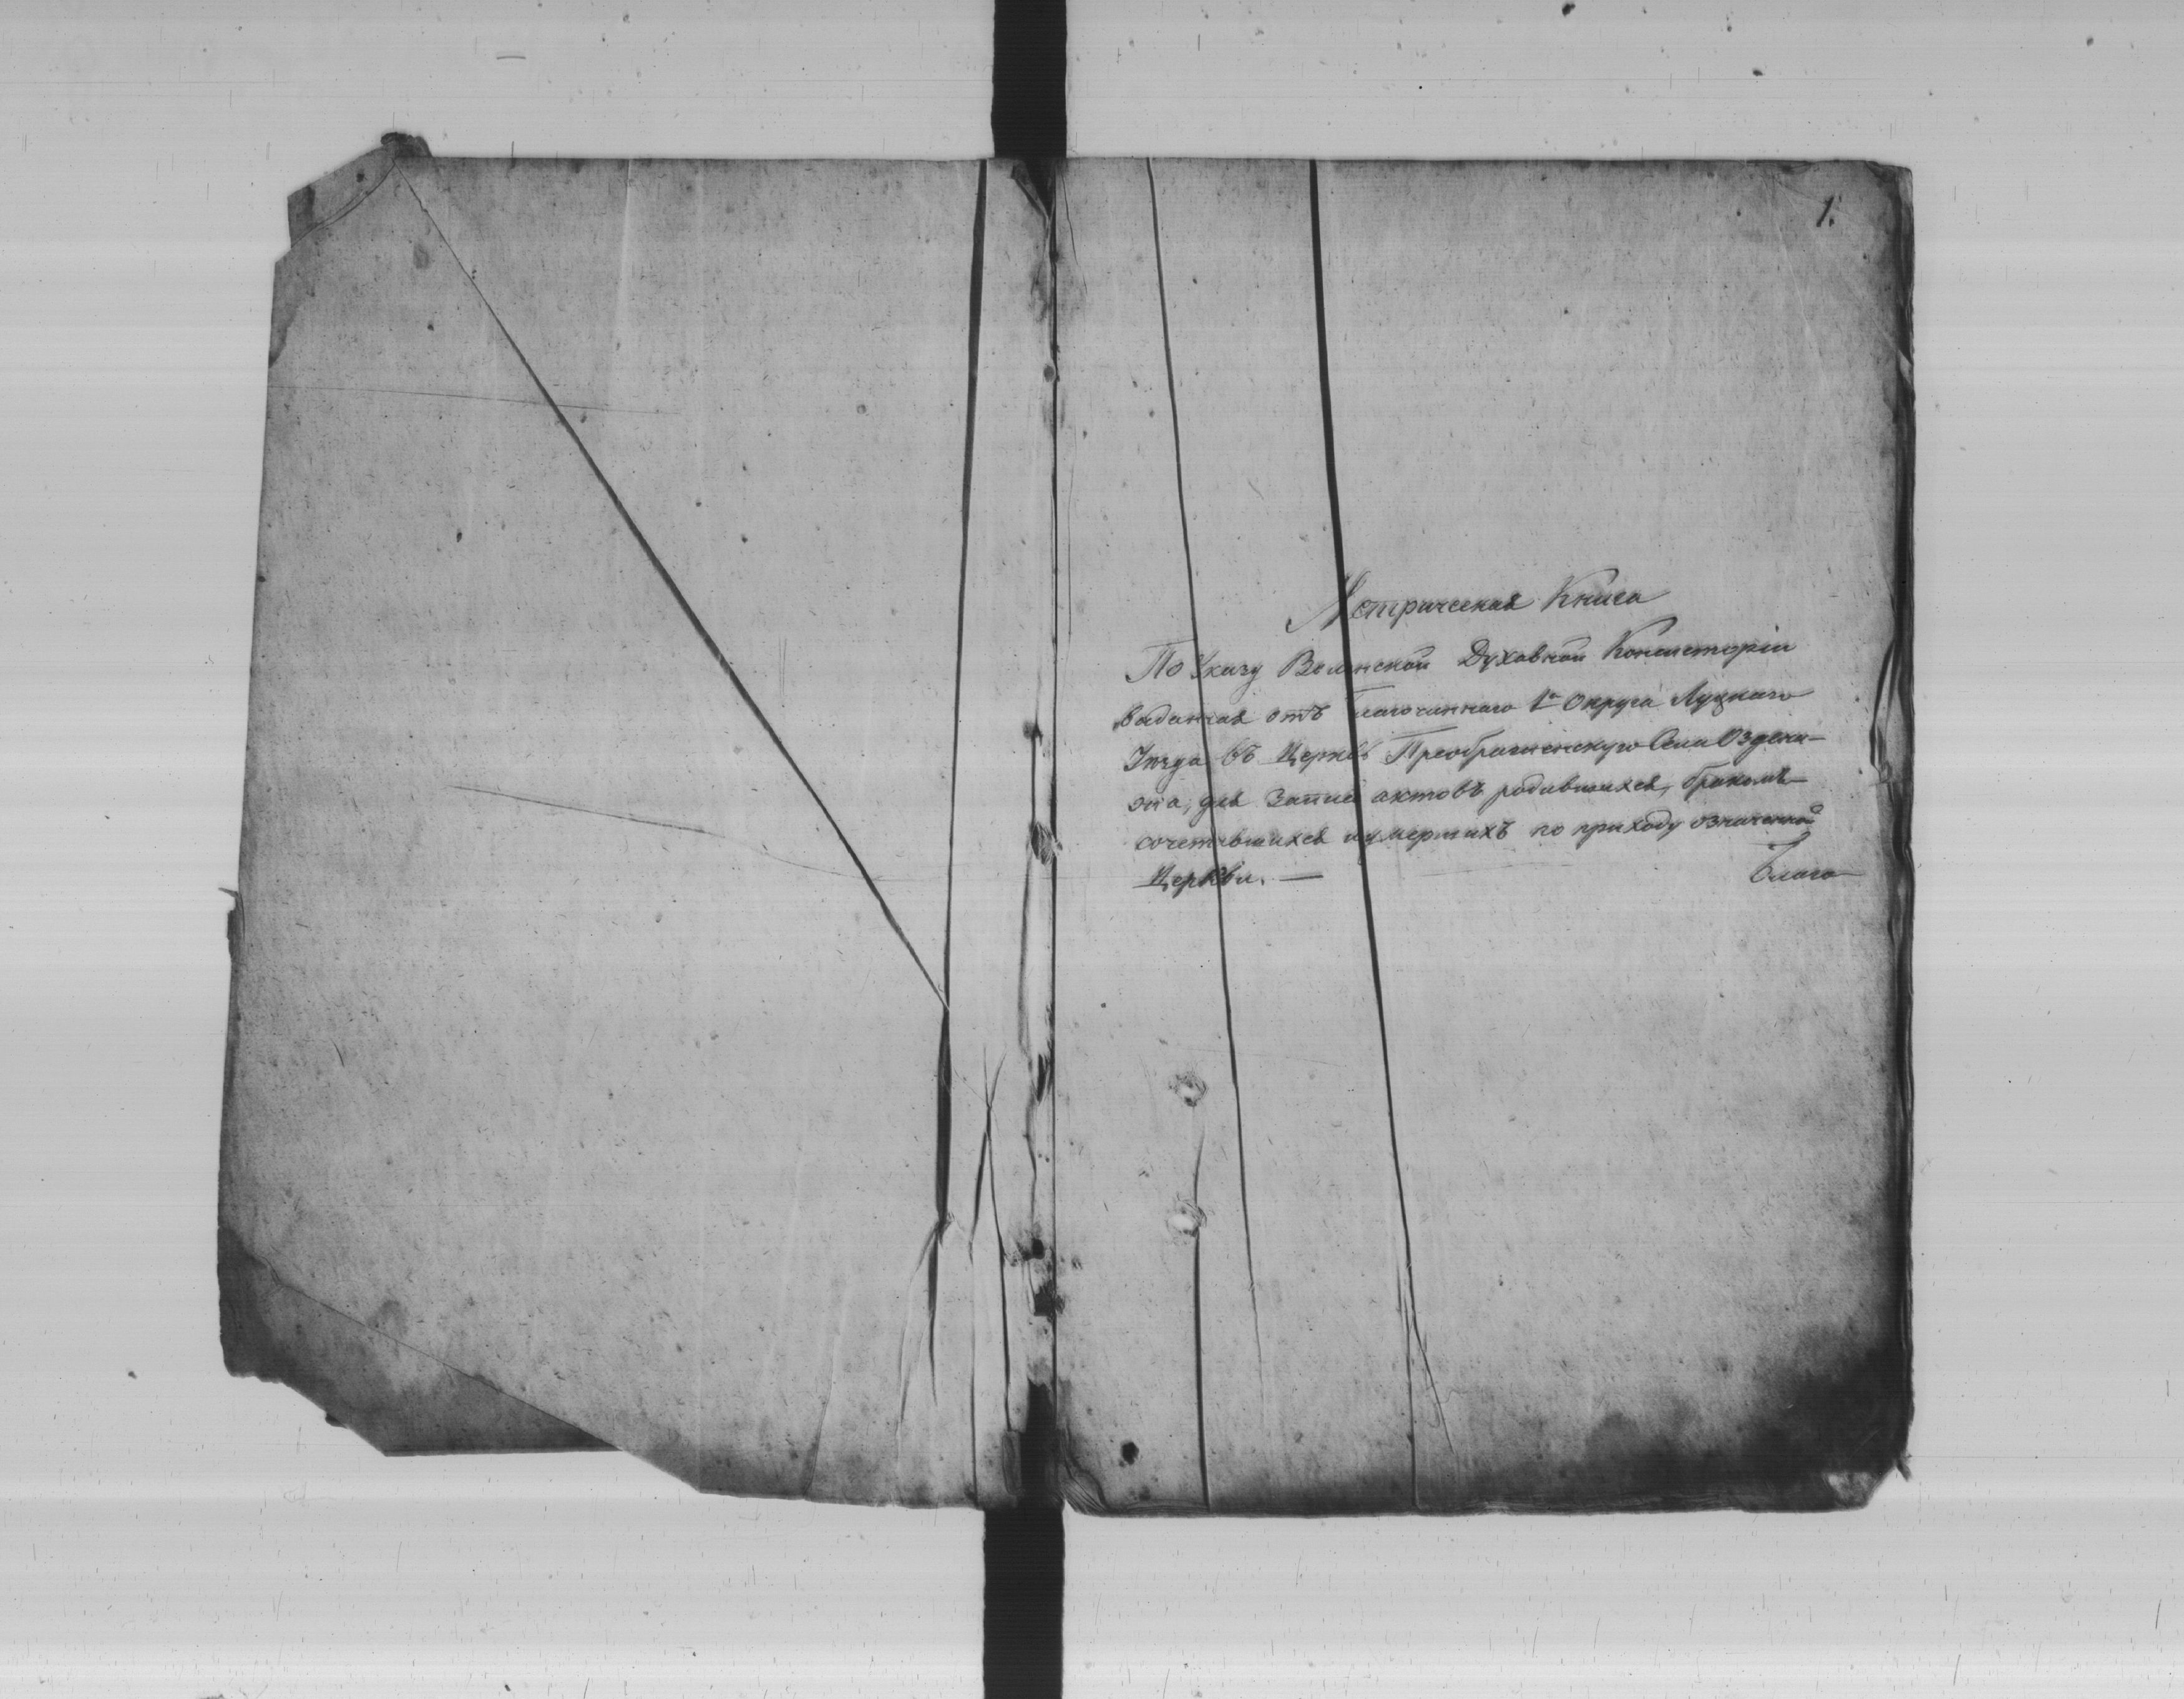 1.
Метрическая Книга
По Указу Волынской Духовной Консисторіи
выданная отъ Благочиннаго 1го Округа Луцкаго
Уѣзда въ Церковь Преображенскую Села
для записи актовъ родившихся, бракомъ
сочетавшихся и умершихъ по приходу означенной
Церкви. — Благо